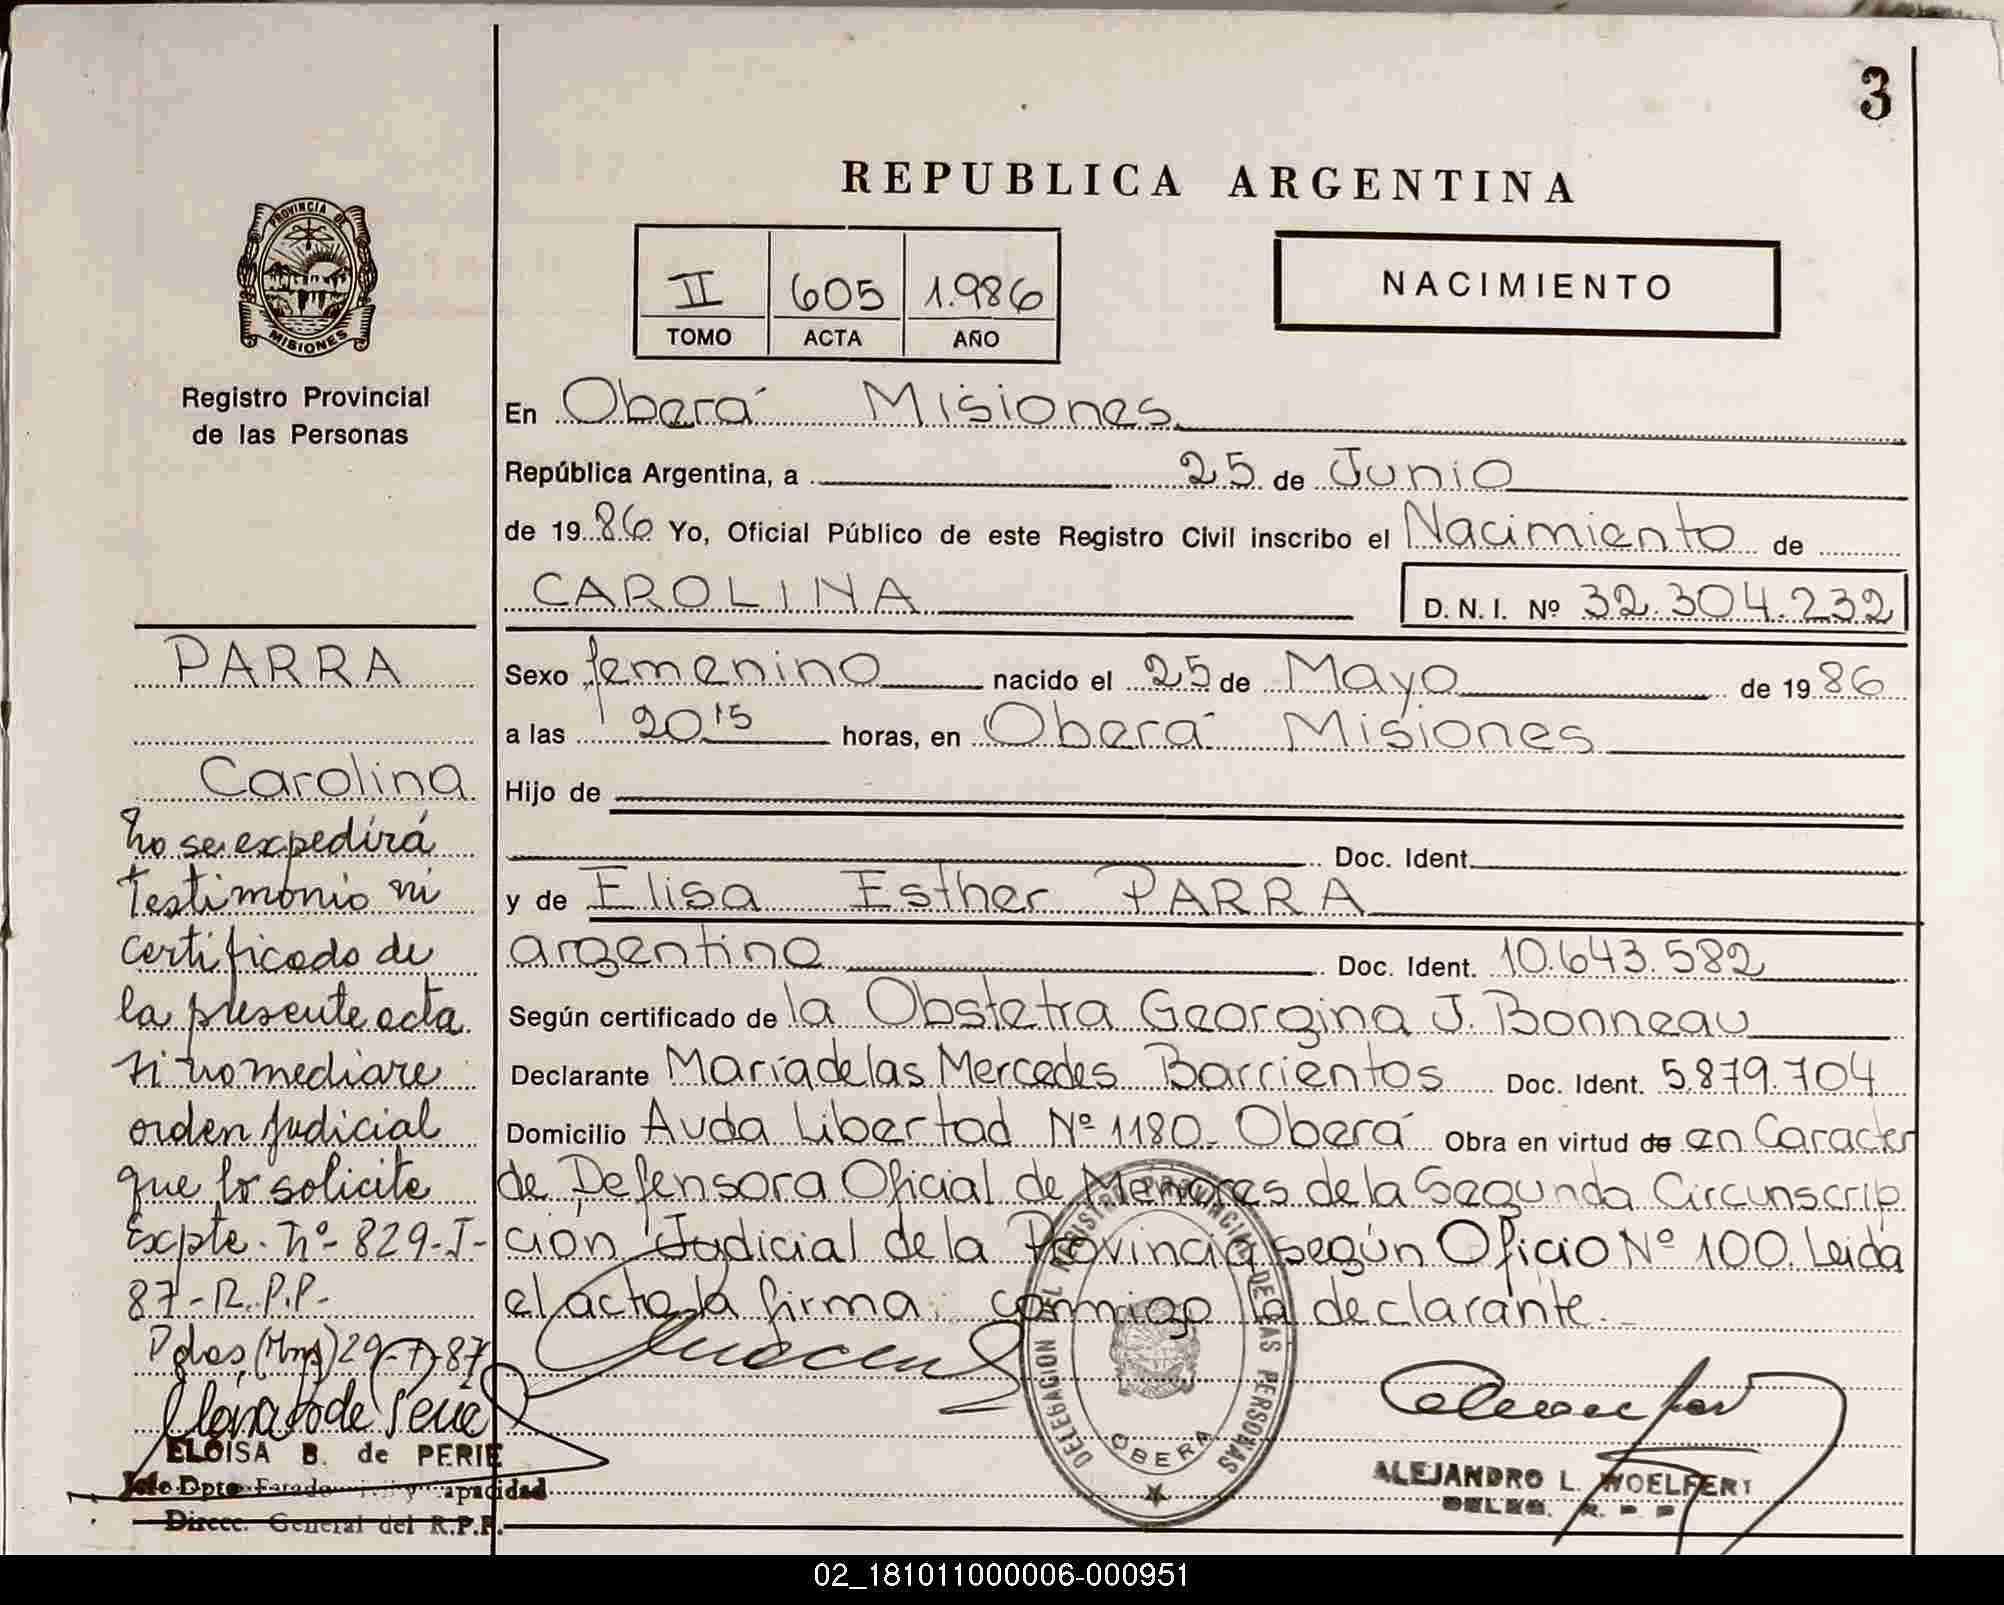 3
REPUBLICA ARGENTINA
PROVINCIA DE
MISIONES
Registro Provincial
de las Personas
II 605 1.986
TOMO ACTA AÑO
NACIMIENTO
En Oberá Misiones
República Argentina, a 25 de Junio
de 19 86 Yo, Oficial Público de este Registro Civil inscribo el Nacimiento de
CAROLINA D. N. I. Nº 32.304.232
Sexo femenino nacido el 25 de Mayo de 19 86
a las 20 15 horas, en Oberá Misiones
Hijo de
Doc. Ident.
y de Elisa Esther PARRA
argentina Doc. Ident. 10.643.582
Según certificado de la Obstetra Georgina J. Bonneau
Declarante María de las Mercedes Barrientos Doc. Ident. 5.879.704
Domicilio Avda Libertad Nº 1180- Oberá Obra en virtud de en Caracter
de Defensora Oficial de Menores de la Segunda Circunscrip
ción Judicial de la Provincia según Oficio Nº 100. Leida
el acta la firma, conmigo la declarante.
PARRA
Carolina
No se expedirá
Testimonio ni
certificado de
la presente acta
si no mediare
orden judicial
que lo solicite
Expte. Nº- 829-I-
87-R.P.P.-
Pdas, (Mnes) 29-7-87
ELOISA B. de PERIE
Jefe Dpto Estado Civil y Capacidad
Direcc. General del R.P.P.
DELEGACION DEL REGISTRO PROVINCIAL DE LAS PERSONAS
OBERA
ALEJANDRO L. WOELFERT
DELEG. R. P. P.
02_181011000006-000951